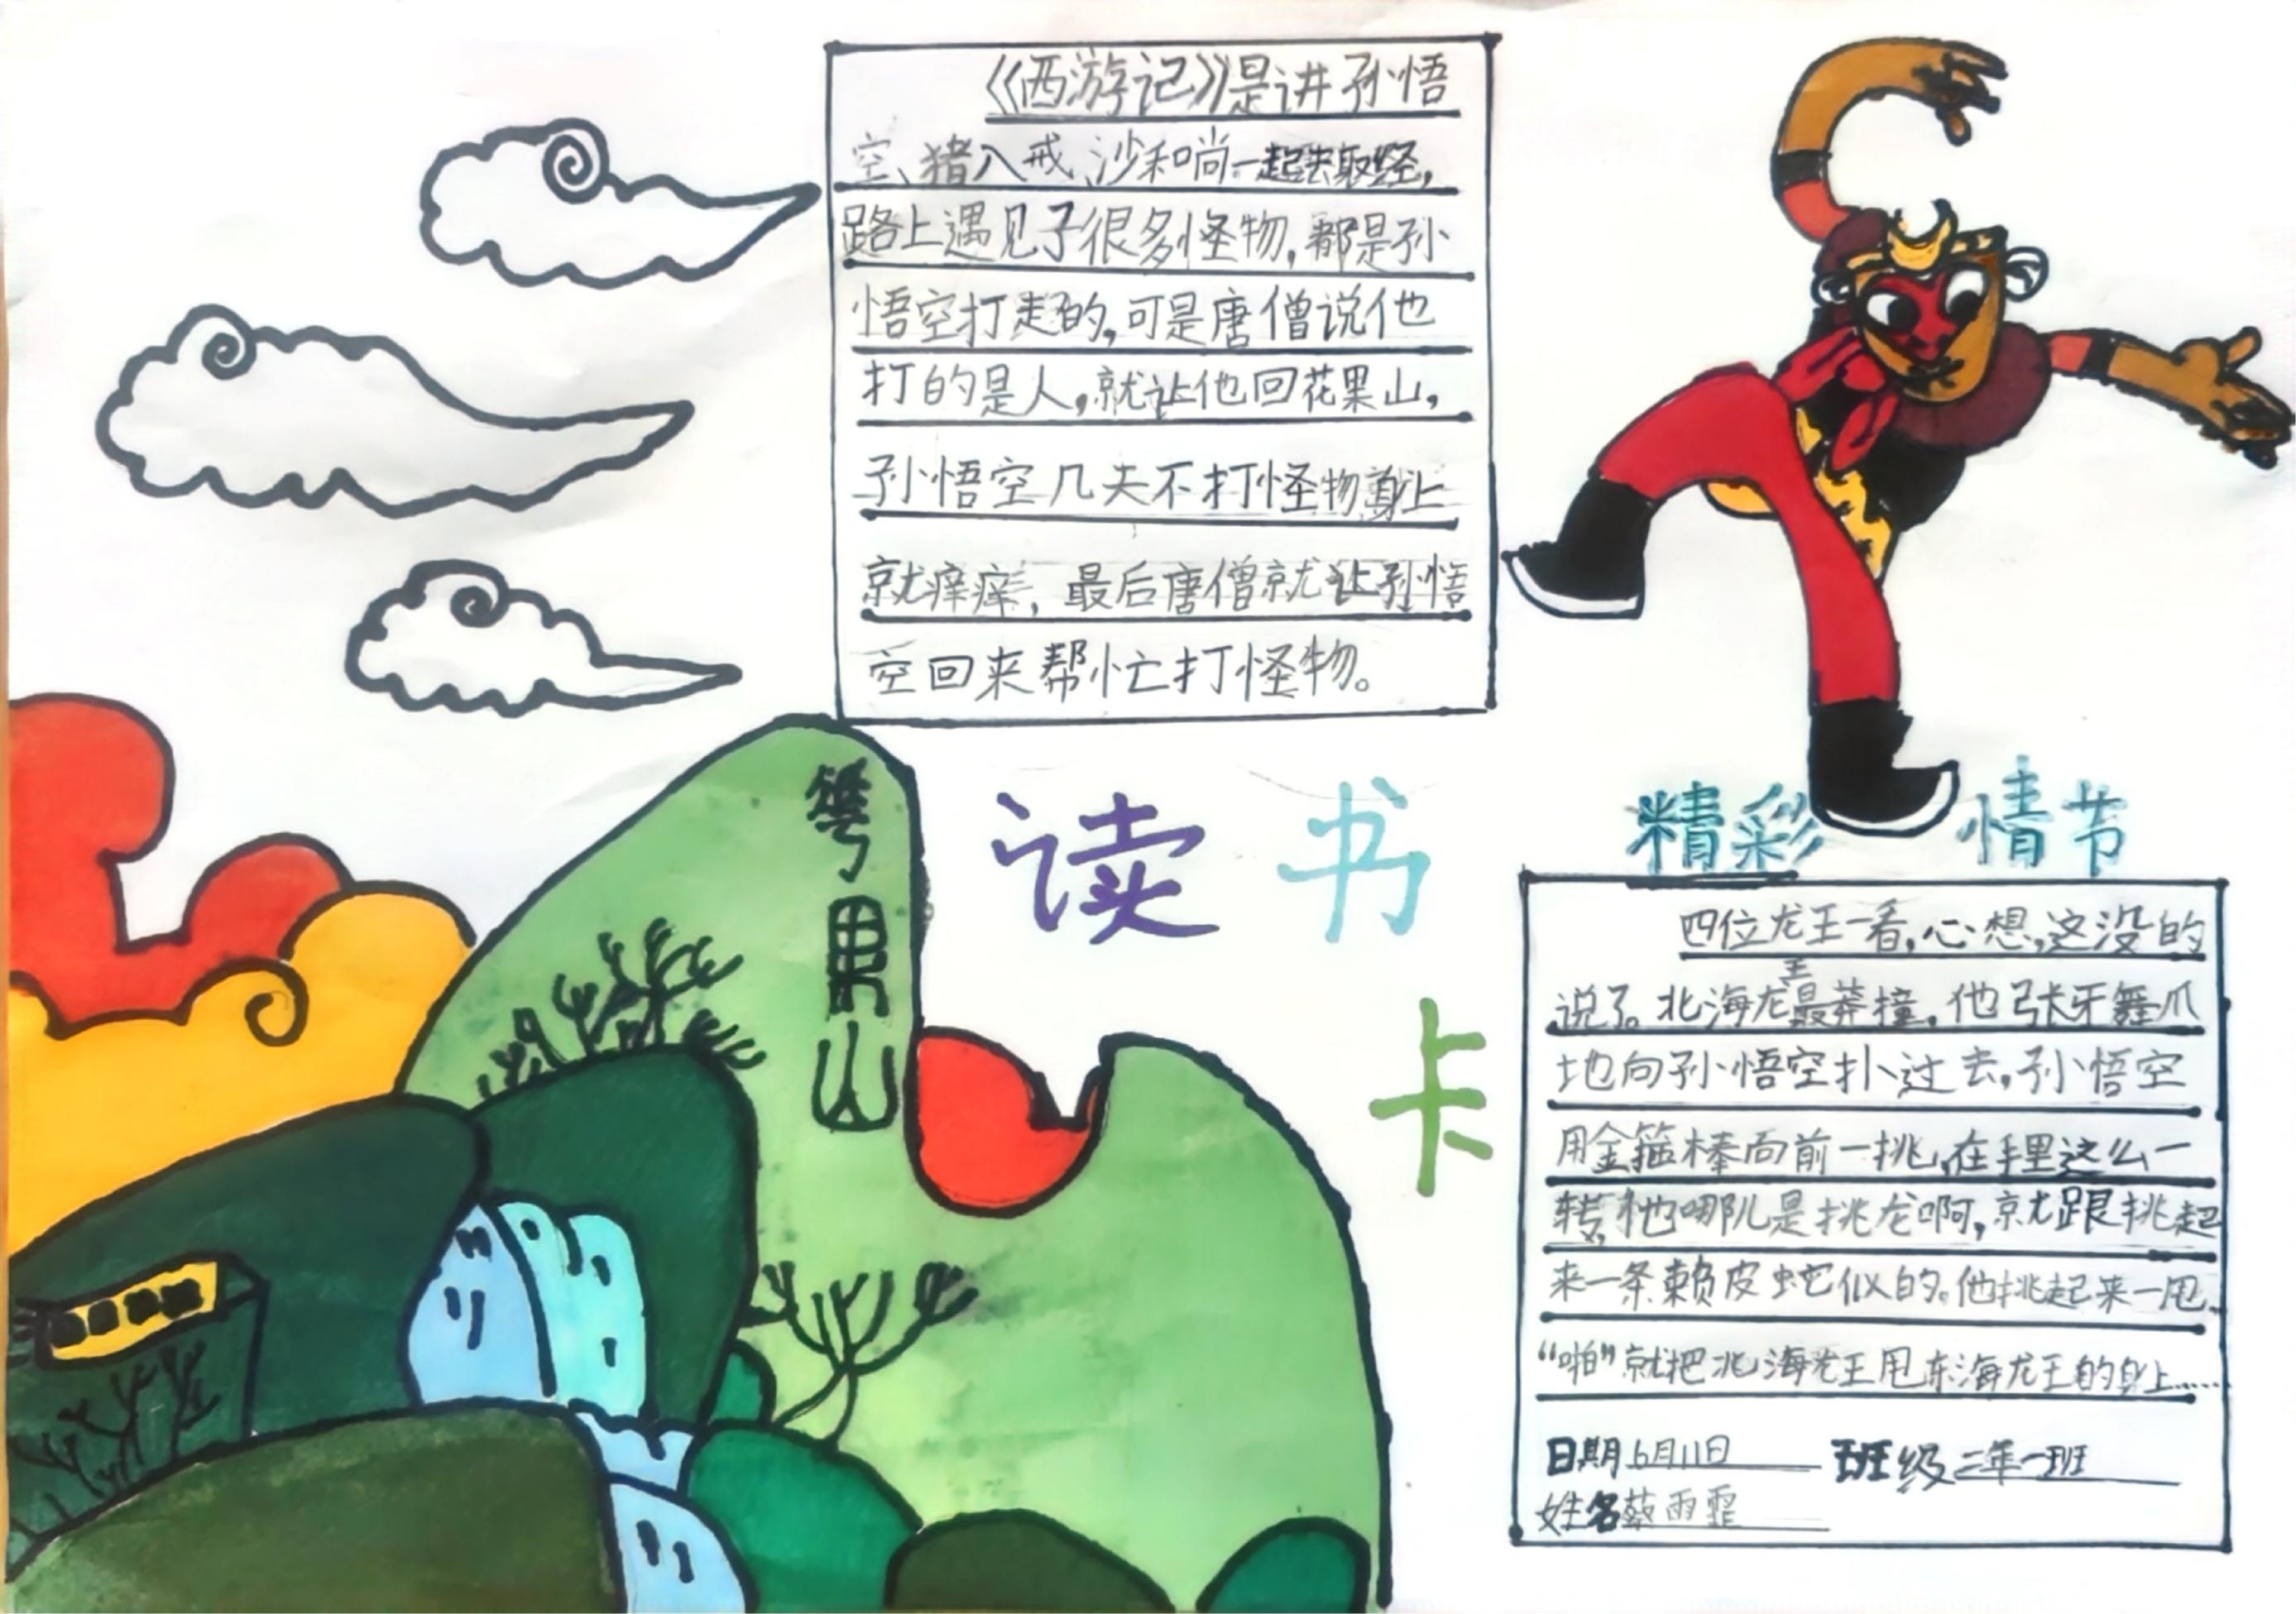 《西游记》是讲孙悟
空、猪八戒、沙和尚一起去取经,
路上遇见了很多怪物,都是孙
悟空打走的,可是唐僧说他
打的是人,就让他回花果山,
孙悟空几天不打怪物身上
就痒痒,最后唐僧就让孙悟
空回来帮忙打怪物。
华果山
读书
卡
精彩情节
四位龙王一看,心想,这没的
说了。北海龙王最莽撞,他张牙舞爪
地向孙悟空扑过去,孙悟空
用金箍棒向前一挑,在手里这么一
转,他哪儿是挑龙啊,就跟挑起
来一条赖皮蛇似的。他挑起来一甩,
“啪”就把北海龙王甩东海龙王的身上……
日期6月11日 班级二年一班
姓名蔡雨霏